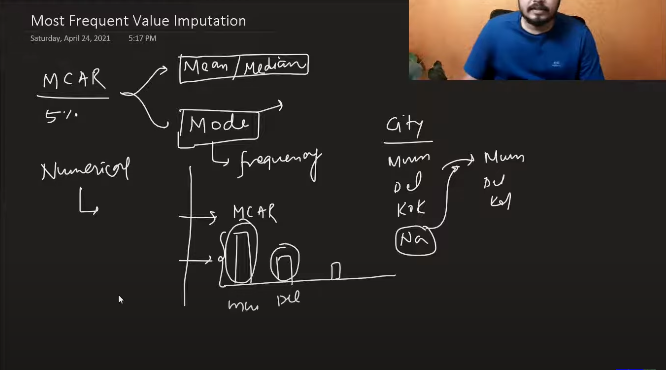 Most Frequent Value Imputation
Saturday, April 24, 2021 5:17 PM
MCAR
5%
Mean/Median
Mode
frequency
Numerical
City
Mum
Del
Kok
Na
Mum
Del
Kol
MCAR
mum
Del